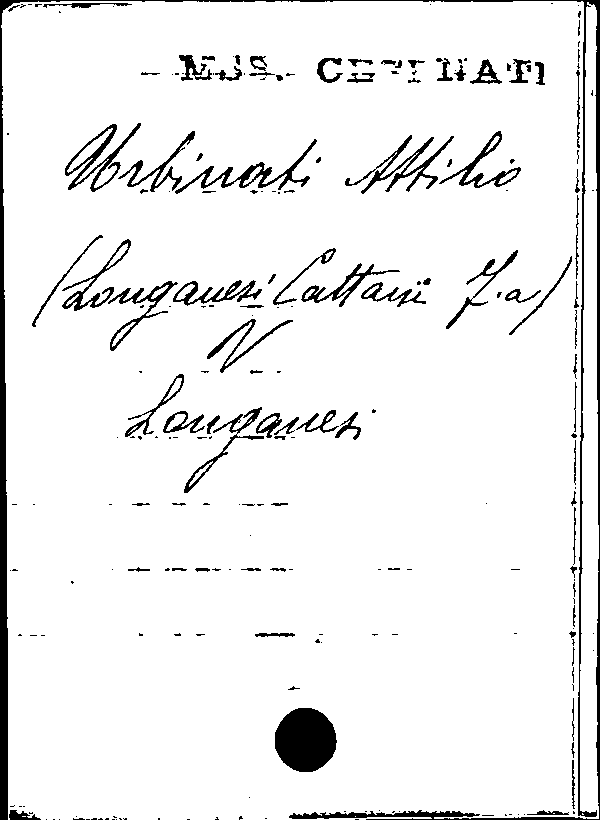 MSS. CERINATI
Urbinati Attilio
(Longanesi Cattani I.a)
V
Longanesi